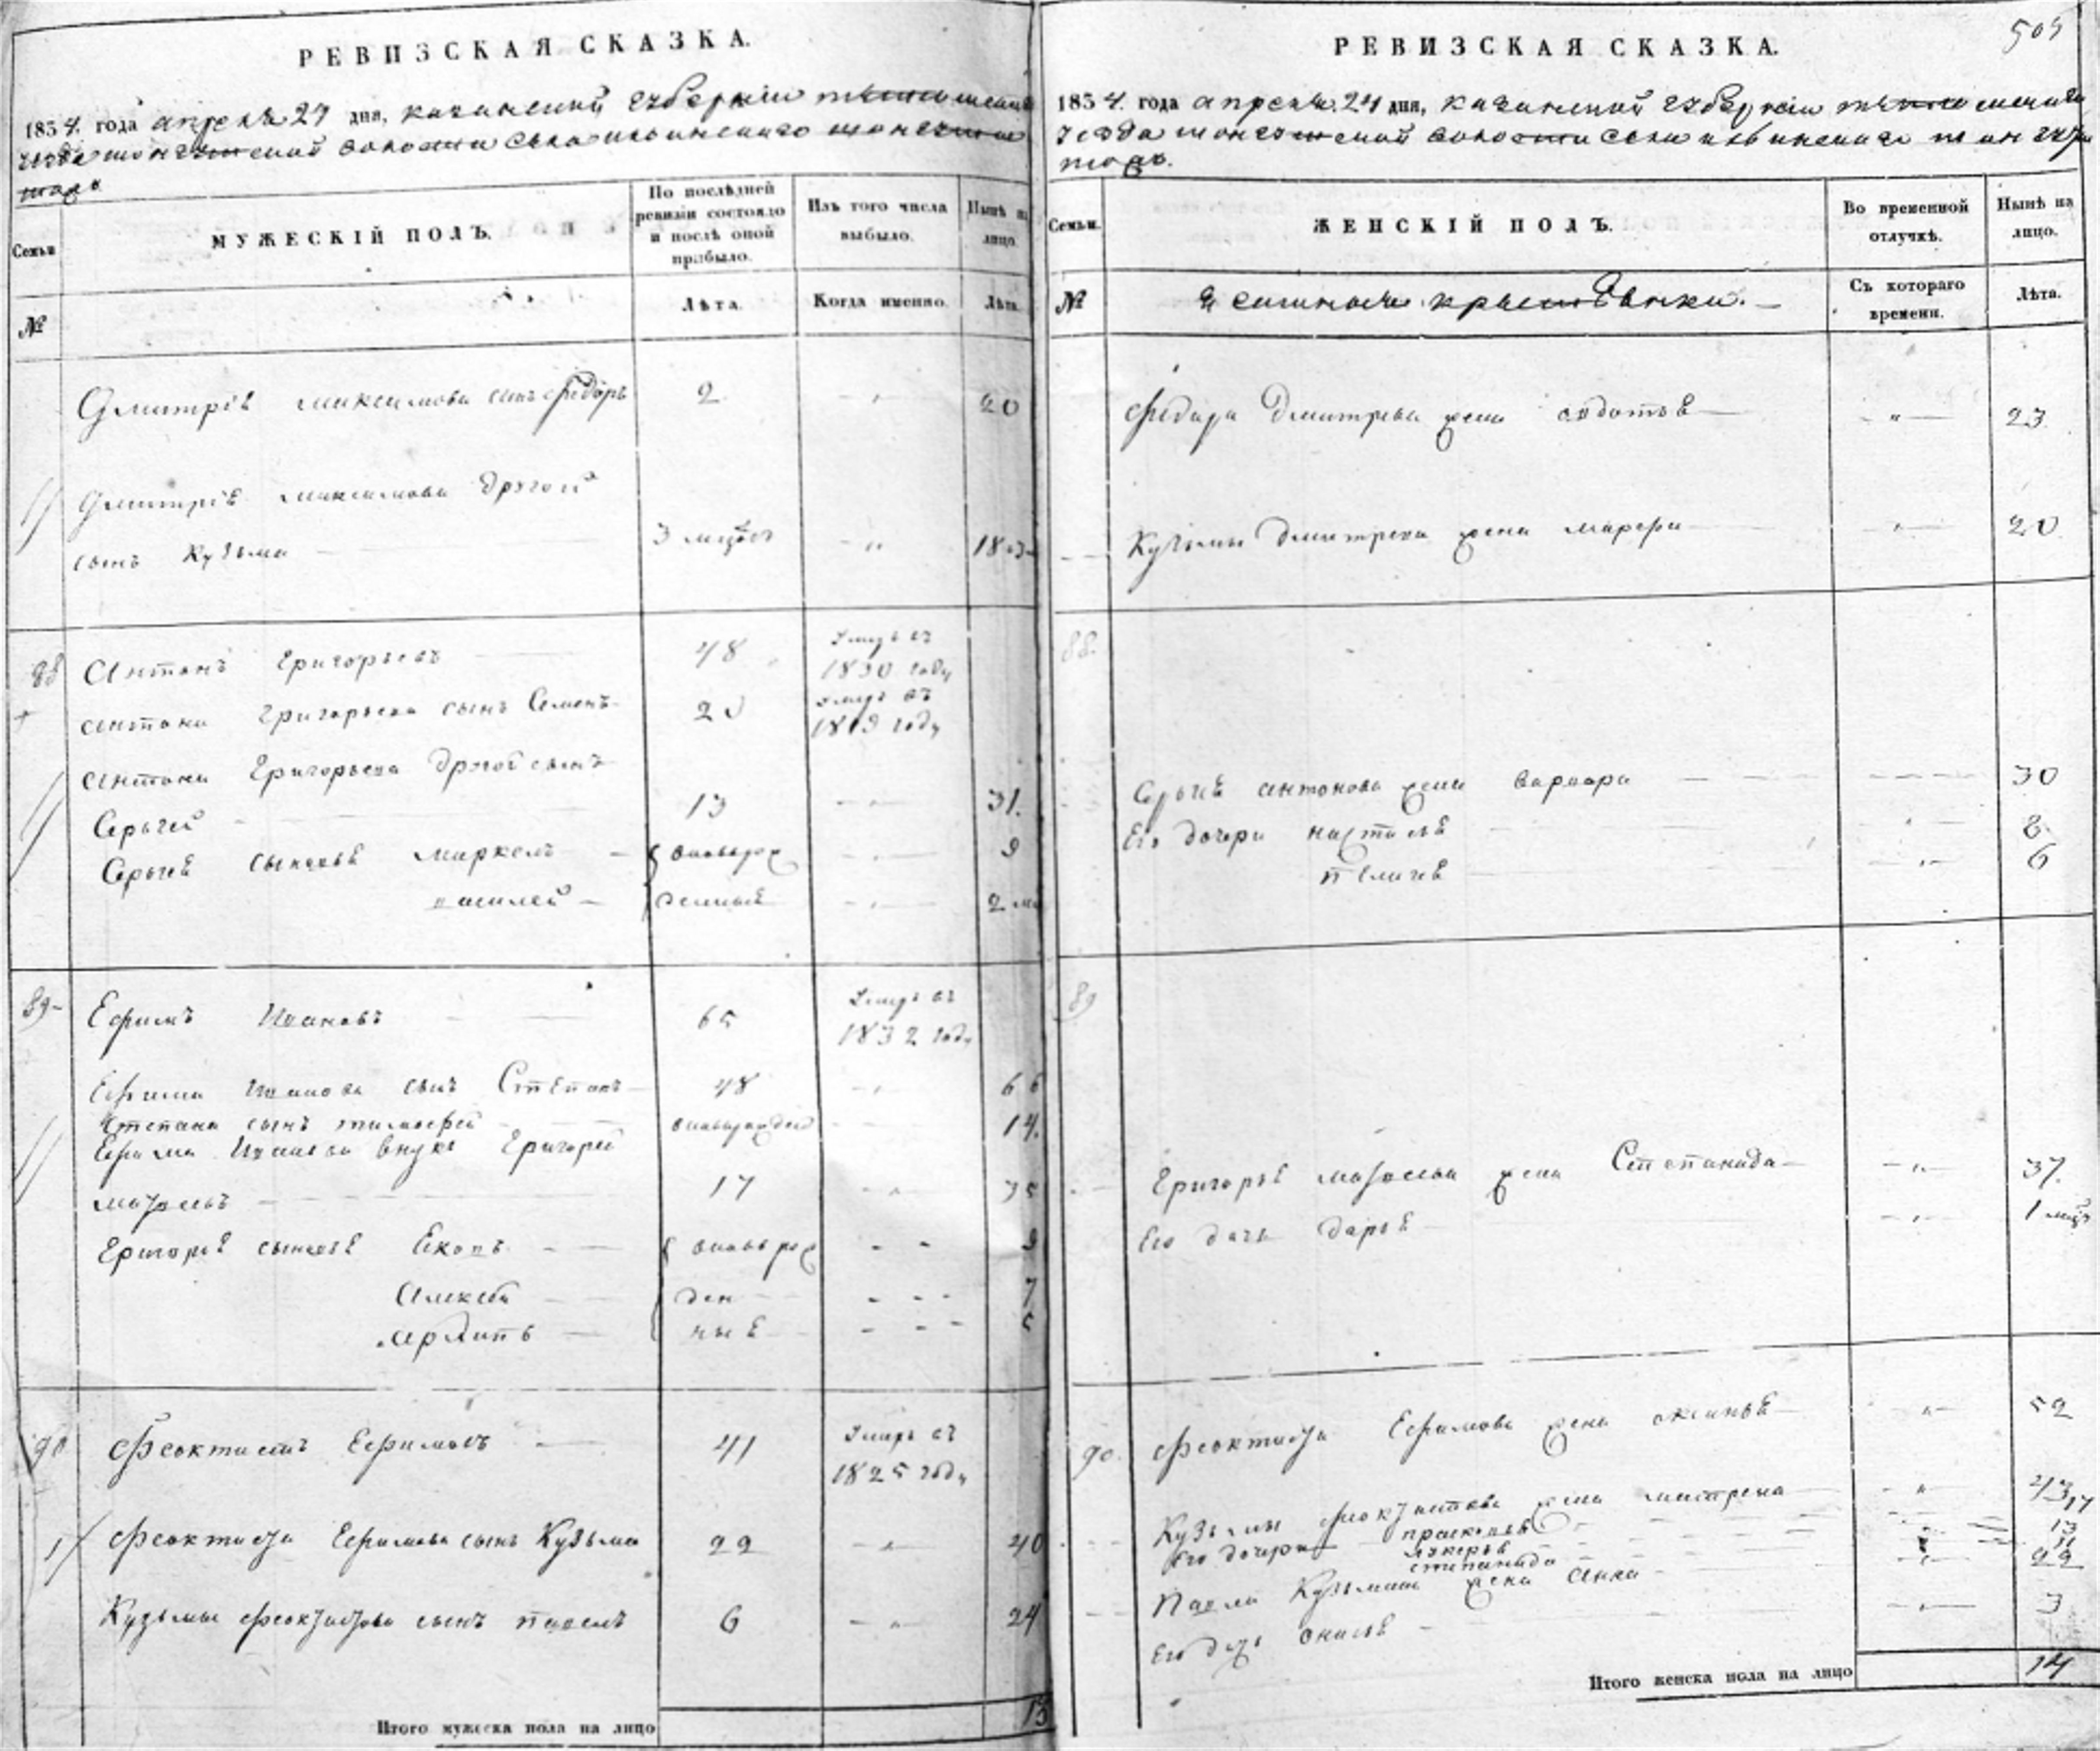 РЕВИЗСКАЯ СКАЗКА.
1834. года апреля 24 дня, казанской губернии
волости села ильинскаго
Семьи
МУЖЕСКІЙ ПОЛЪ.
По послѣдней ревизіи состояло и послѣ оной прибыло.
Изъ того числа выбыло.
Нынѣ на лицо.
№
Лѣта.
Когда именно.
Лѣта
Дмитріѣ максимова сынъ федоръ 2 20
Дмитріѣ максимова другой
сынъ Кузьма 3 18
88 Антонъ Григорьевъ 48 умеръ въ
1830 году
антона григорьева сынъ Семенъ 20 умеръ въ
году
антона Григорьева другой сынъ
Сергей 13 31.
Сергеѣ сыновьѣ маркелъ вновьрож 9
василей денныѣ 2
89 Ефимъ Ивановъ 65 умеръ въ
1832 году
Ефима Иванова сынъ Степанъ 48 66
Степана сынъ тимофей 14.
Ефима Иванова внукъ Григорей
17 35
Григорьѣ сыновьѣ вновь рож 9
Алексей ден 7
ныѣ 5
90 Феоктистъ Ефимовъ 41 умеръ въ
1825 году
Феоктиста Ефимова сынъ Кузьма 22 40
Кузьмы феоктистова сынъ павелъ 6 24
Итого мужеска пола на лицо 13
505
РЕВИЗСКАЯ СКАЗКА.
1834. года апреля 24 дня, казанской губернии
уезда волости села ильинскаго
Семьи.
ЖЕНСКІЙ ПОЛЪ.
Во временной отлучкѣ.
Нынѣ на лицо.
№
Съ котораго времени.
Лѣта.
Федора Дмитрева жена авдотьѣ 23
Кузьмы Дмитрева жена марфа 20
88.
Сергеѣ антонова жена варвара 30
Его дочери настасьѣ 8
пелагеѣ 6
89
Григорьѣ жена Степанида 37.
Его дочь дарьѣ 1
90. Феоктиста Ефимова жена аксиньѣ 52
Кузьмы феоктистова жена матрена 43
Его дочери прасковьѣ 17
лукерьѣ 13
степанида 11
Павла Кузьмина жена Анна 22
Его дочь анисьѣ 3
Итого женска пола на лицо 14